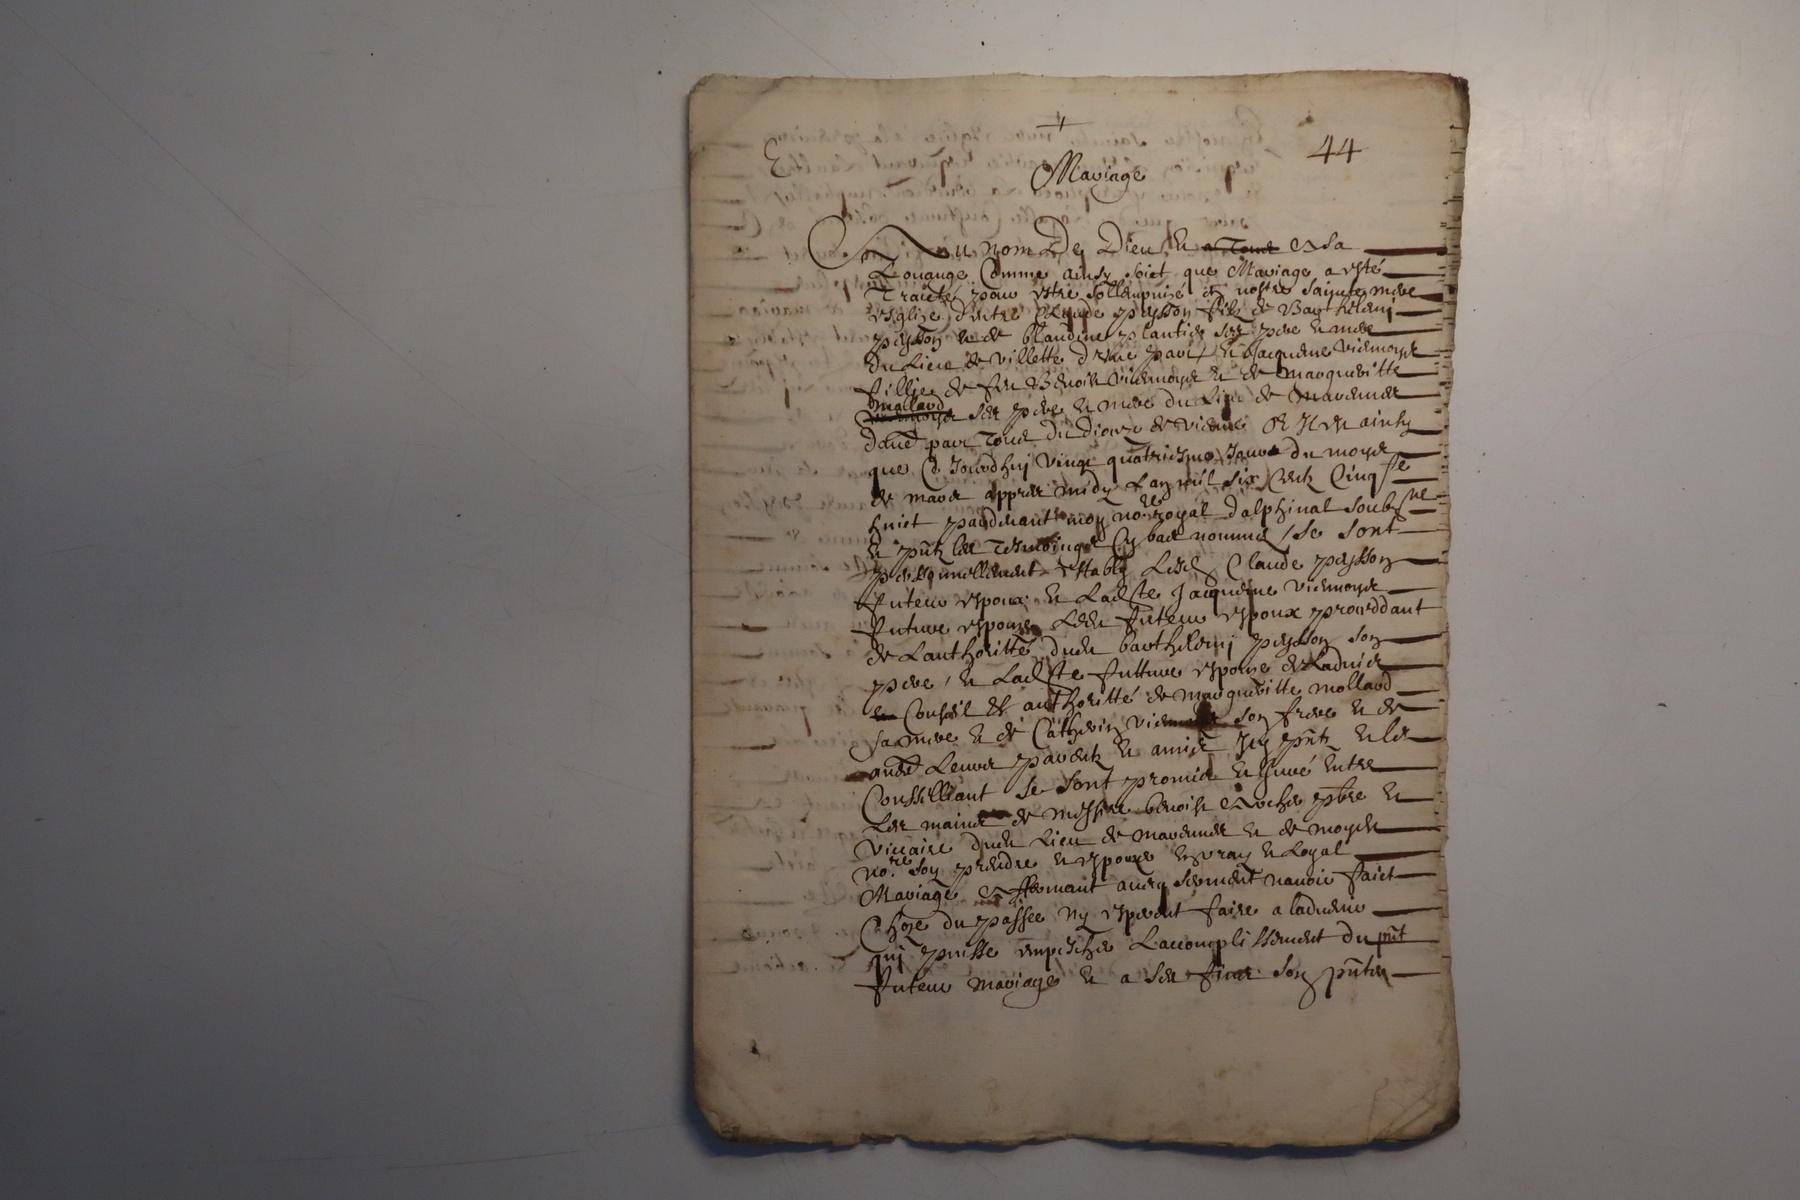 44
Mariage
Au nom De Dieu, et a Sa
Louange Comme ainsy soict que Mariage a esté
Traicté pour estre sollempnizé en nostre saincte mere
Esglize d'entre Claude peysson filz de Barthelemj
peysson et de blandine plantier ses pere et mere
du Lieu de Villette d'vne part, et Jacqueme Viemoyt
fillie de feu Benoist Viemoyt et de margueritte
mollard
ses pere et mere du Lieu de Marennes
dauʳᵉ part Tous du dioceze de Vienne Or Il est ainsy
que Ce Jourdhuj Vingt quatriesme Jour du moys
de mars appres midy L'an mil six Centz Cinqte
huict pardevant moy nore royal dalphinal soubzne
et pñtz les Tesmoingz Cy bas nommés se sont
personnellement establis Lesdz Claude peysson
futeur espoux et Ladte Jacquême Viemoyt
future espouze Ledt futeur espoux proceddant
de Lauthoritté dudt barthelemj peysson son
pere, et Ladte future espouze de Ladvis
Conseil et authoritté de margueritte mollard
sa mere et de Catherin son frere et de
auʳᵉˢ Leurs parentz et amis Icy pñtz et les
Conseilliant se sont promis et Juré entre
Les mains de messire benoist Roche pbre et
Viccaire dudt Lieu de marennes et de moydt
nore. soy prendre et espouzer en vray et Loyal
Mariage affermant avecq serment navoir faict
Choze du passee ny esperent faire a ladvenir
quj puisse empescher Laccomplissement du pñt
futeur mariage et a ses fins son pñtés